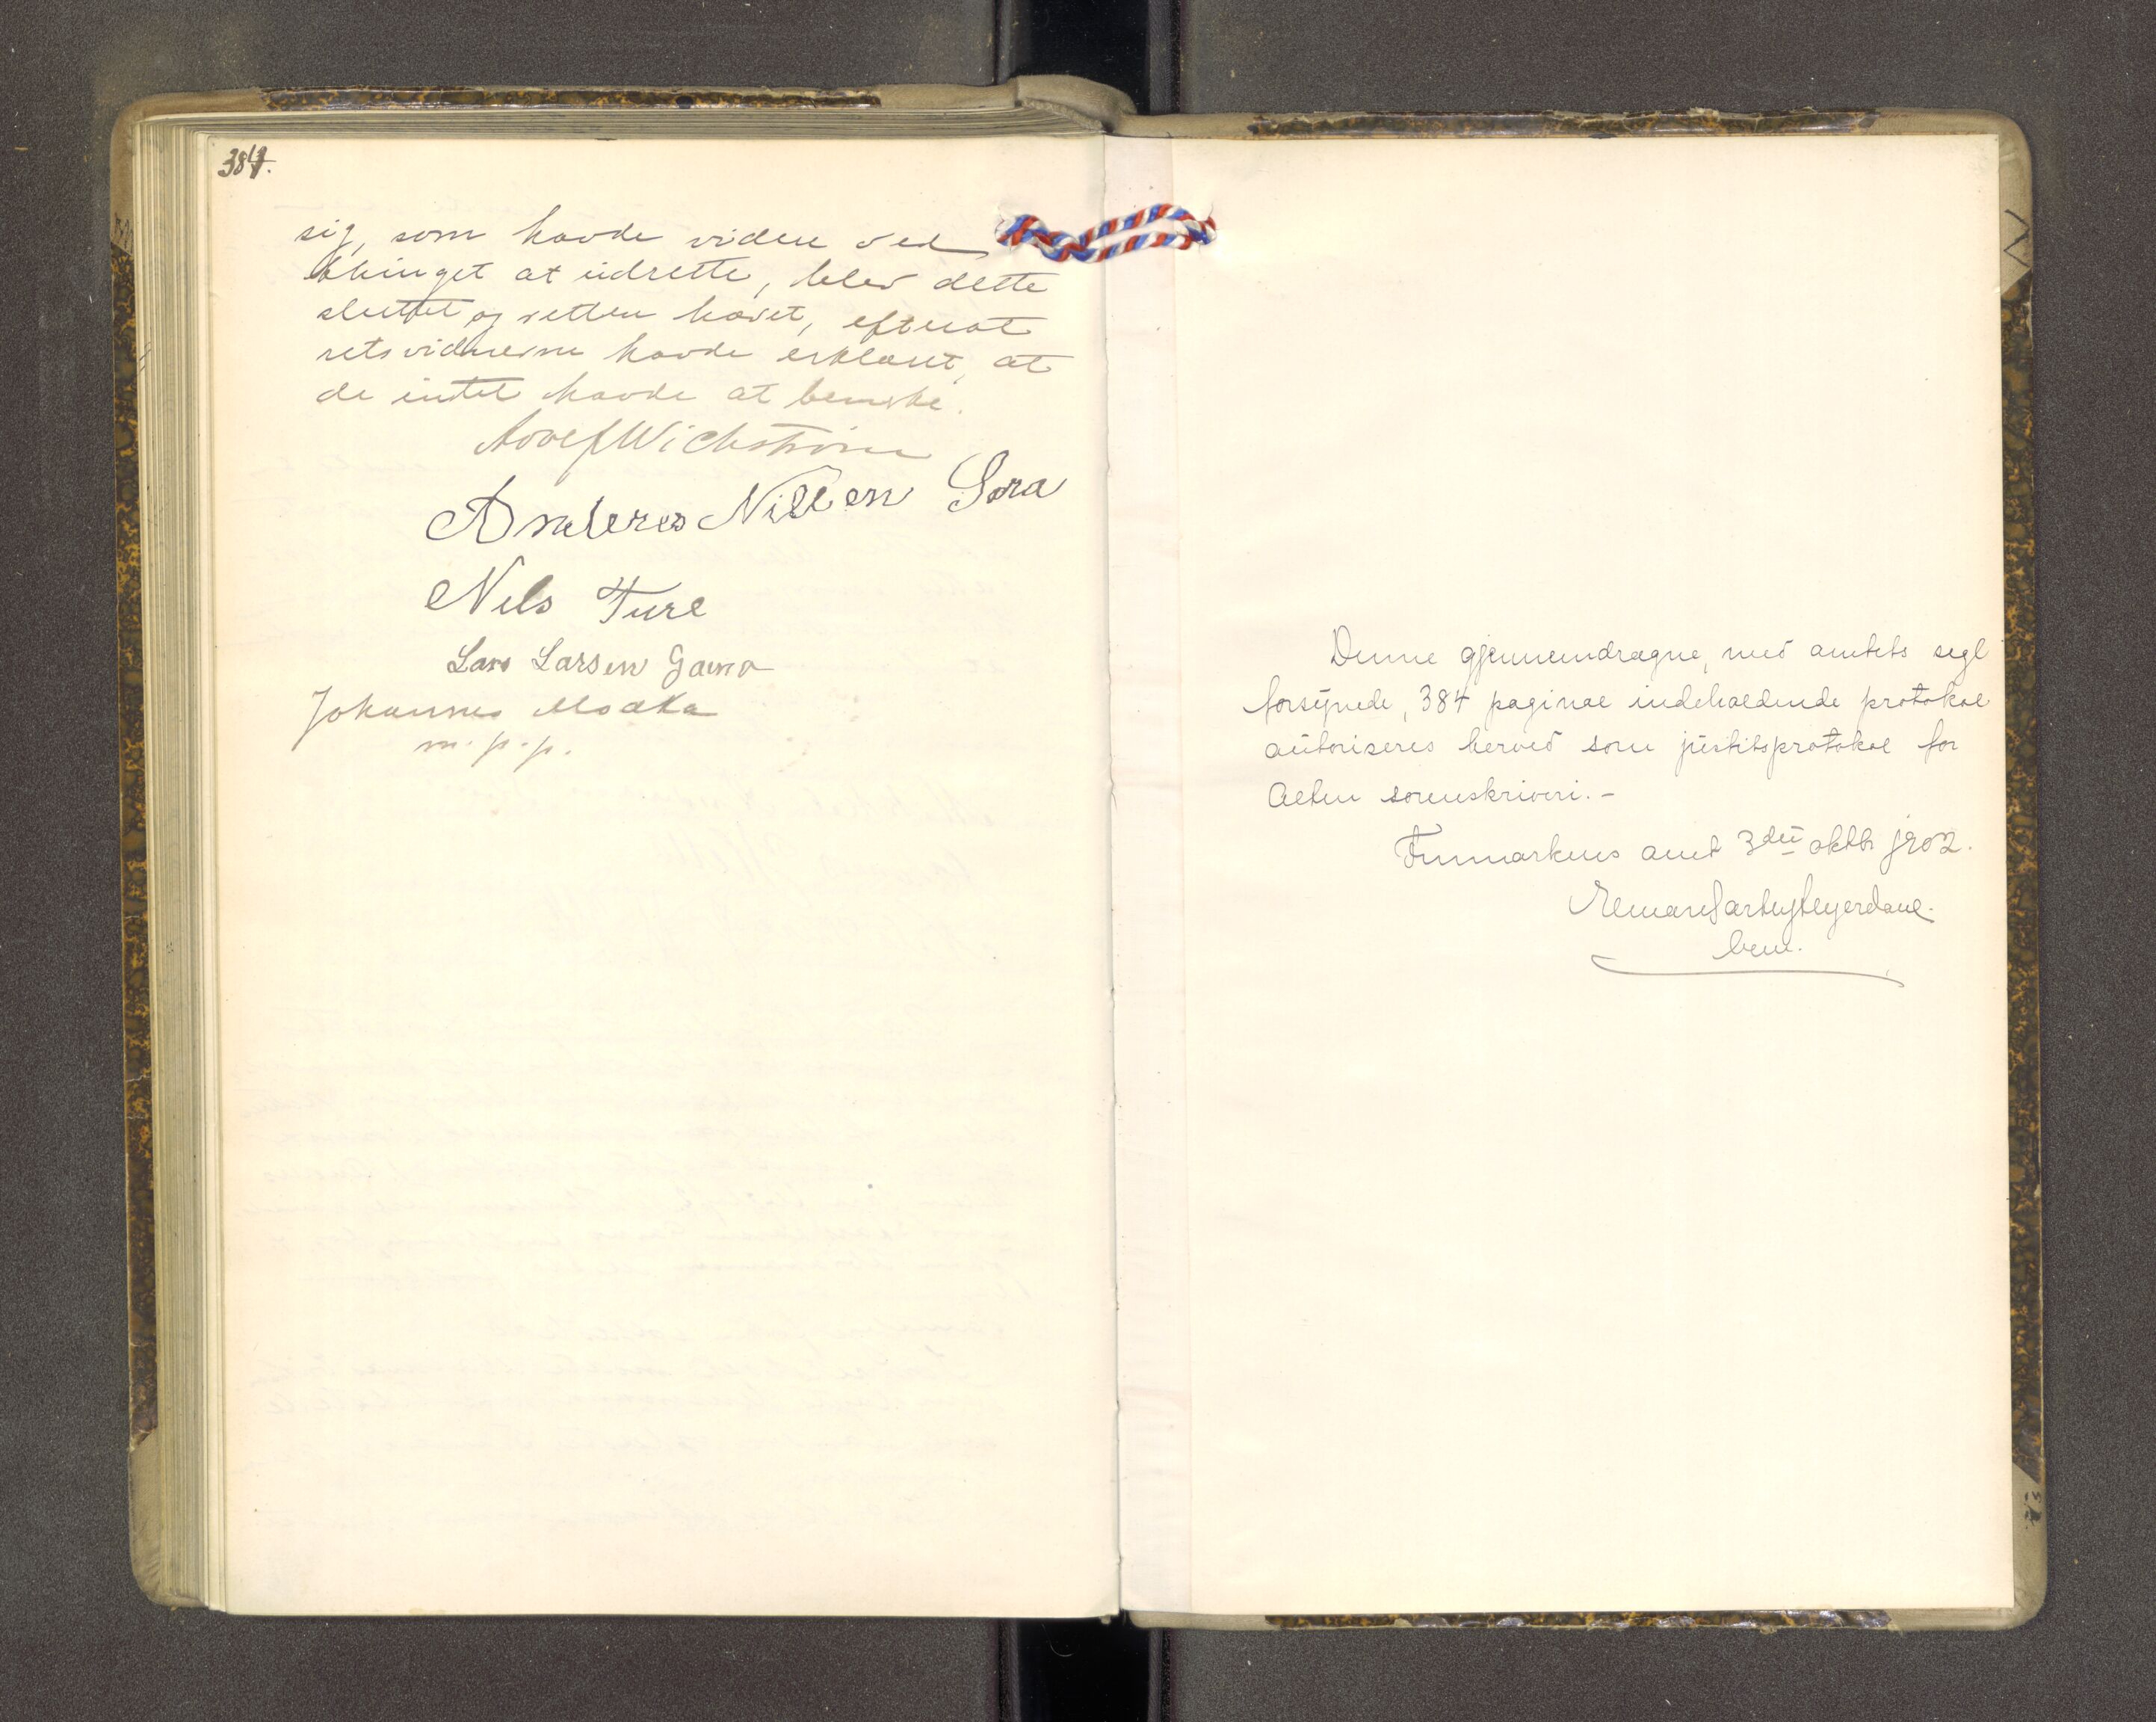 384.
sig, som havde videre ved
thinget at udrette, blev dette
sluttet og retten hævet, efterat
retsvidnerne havde erklæret, at
de intet havde at bemerke.
Adolf Wichstrøm
Anders Nilsen Sara
Nils Ture
Lars Larsen Gaino
Johannes
m. p. p.
Denne gjennemdragne, med amtets segl
forsynede, 384 paginae indeholdende protokol
autoriseres herved som justitsprotokol for
Alten sorenskriveri. -
Finmarkens amt 3die oktbr 1902.
bem.